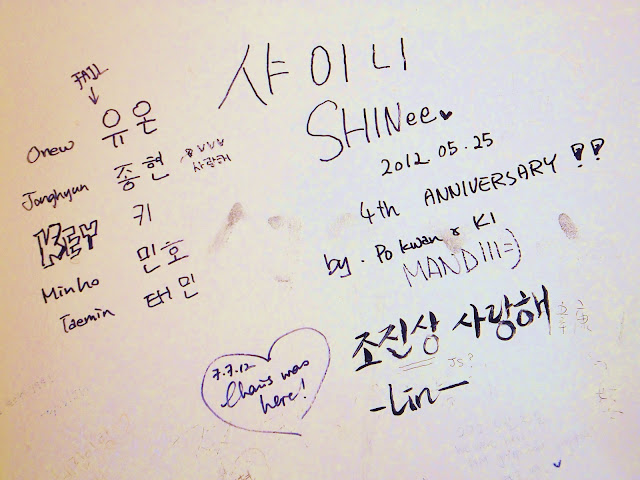 FAIL
Onew 유온
Jonghyun 종현 ♥vvv
사랑해
KEY 키
Minho 민호
Taemin 태민
샤이니
SHINee♥
2012.05.25
4th ANNIVERSARY !!
by. Po Kwan & KI
MANDIII=)
조진상 사랑해
JS?
-Lin-
7.7.12
was
here!